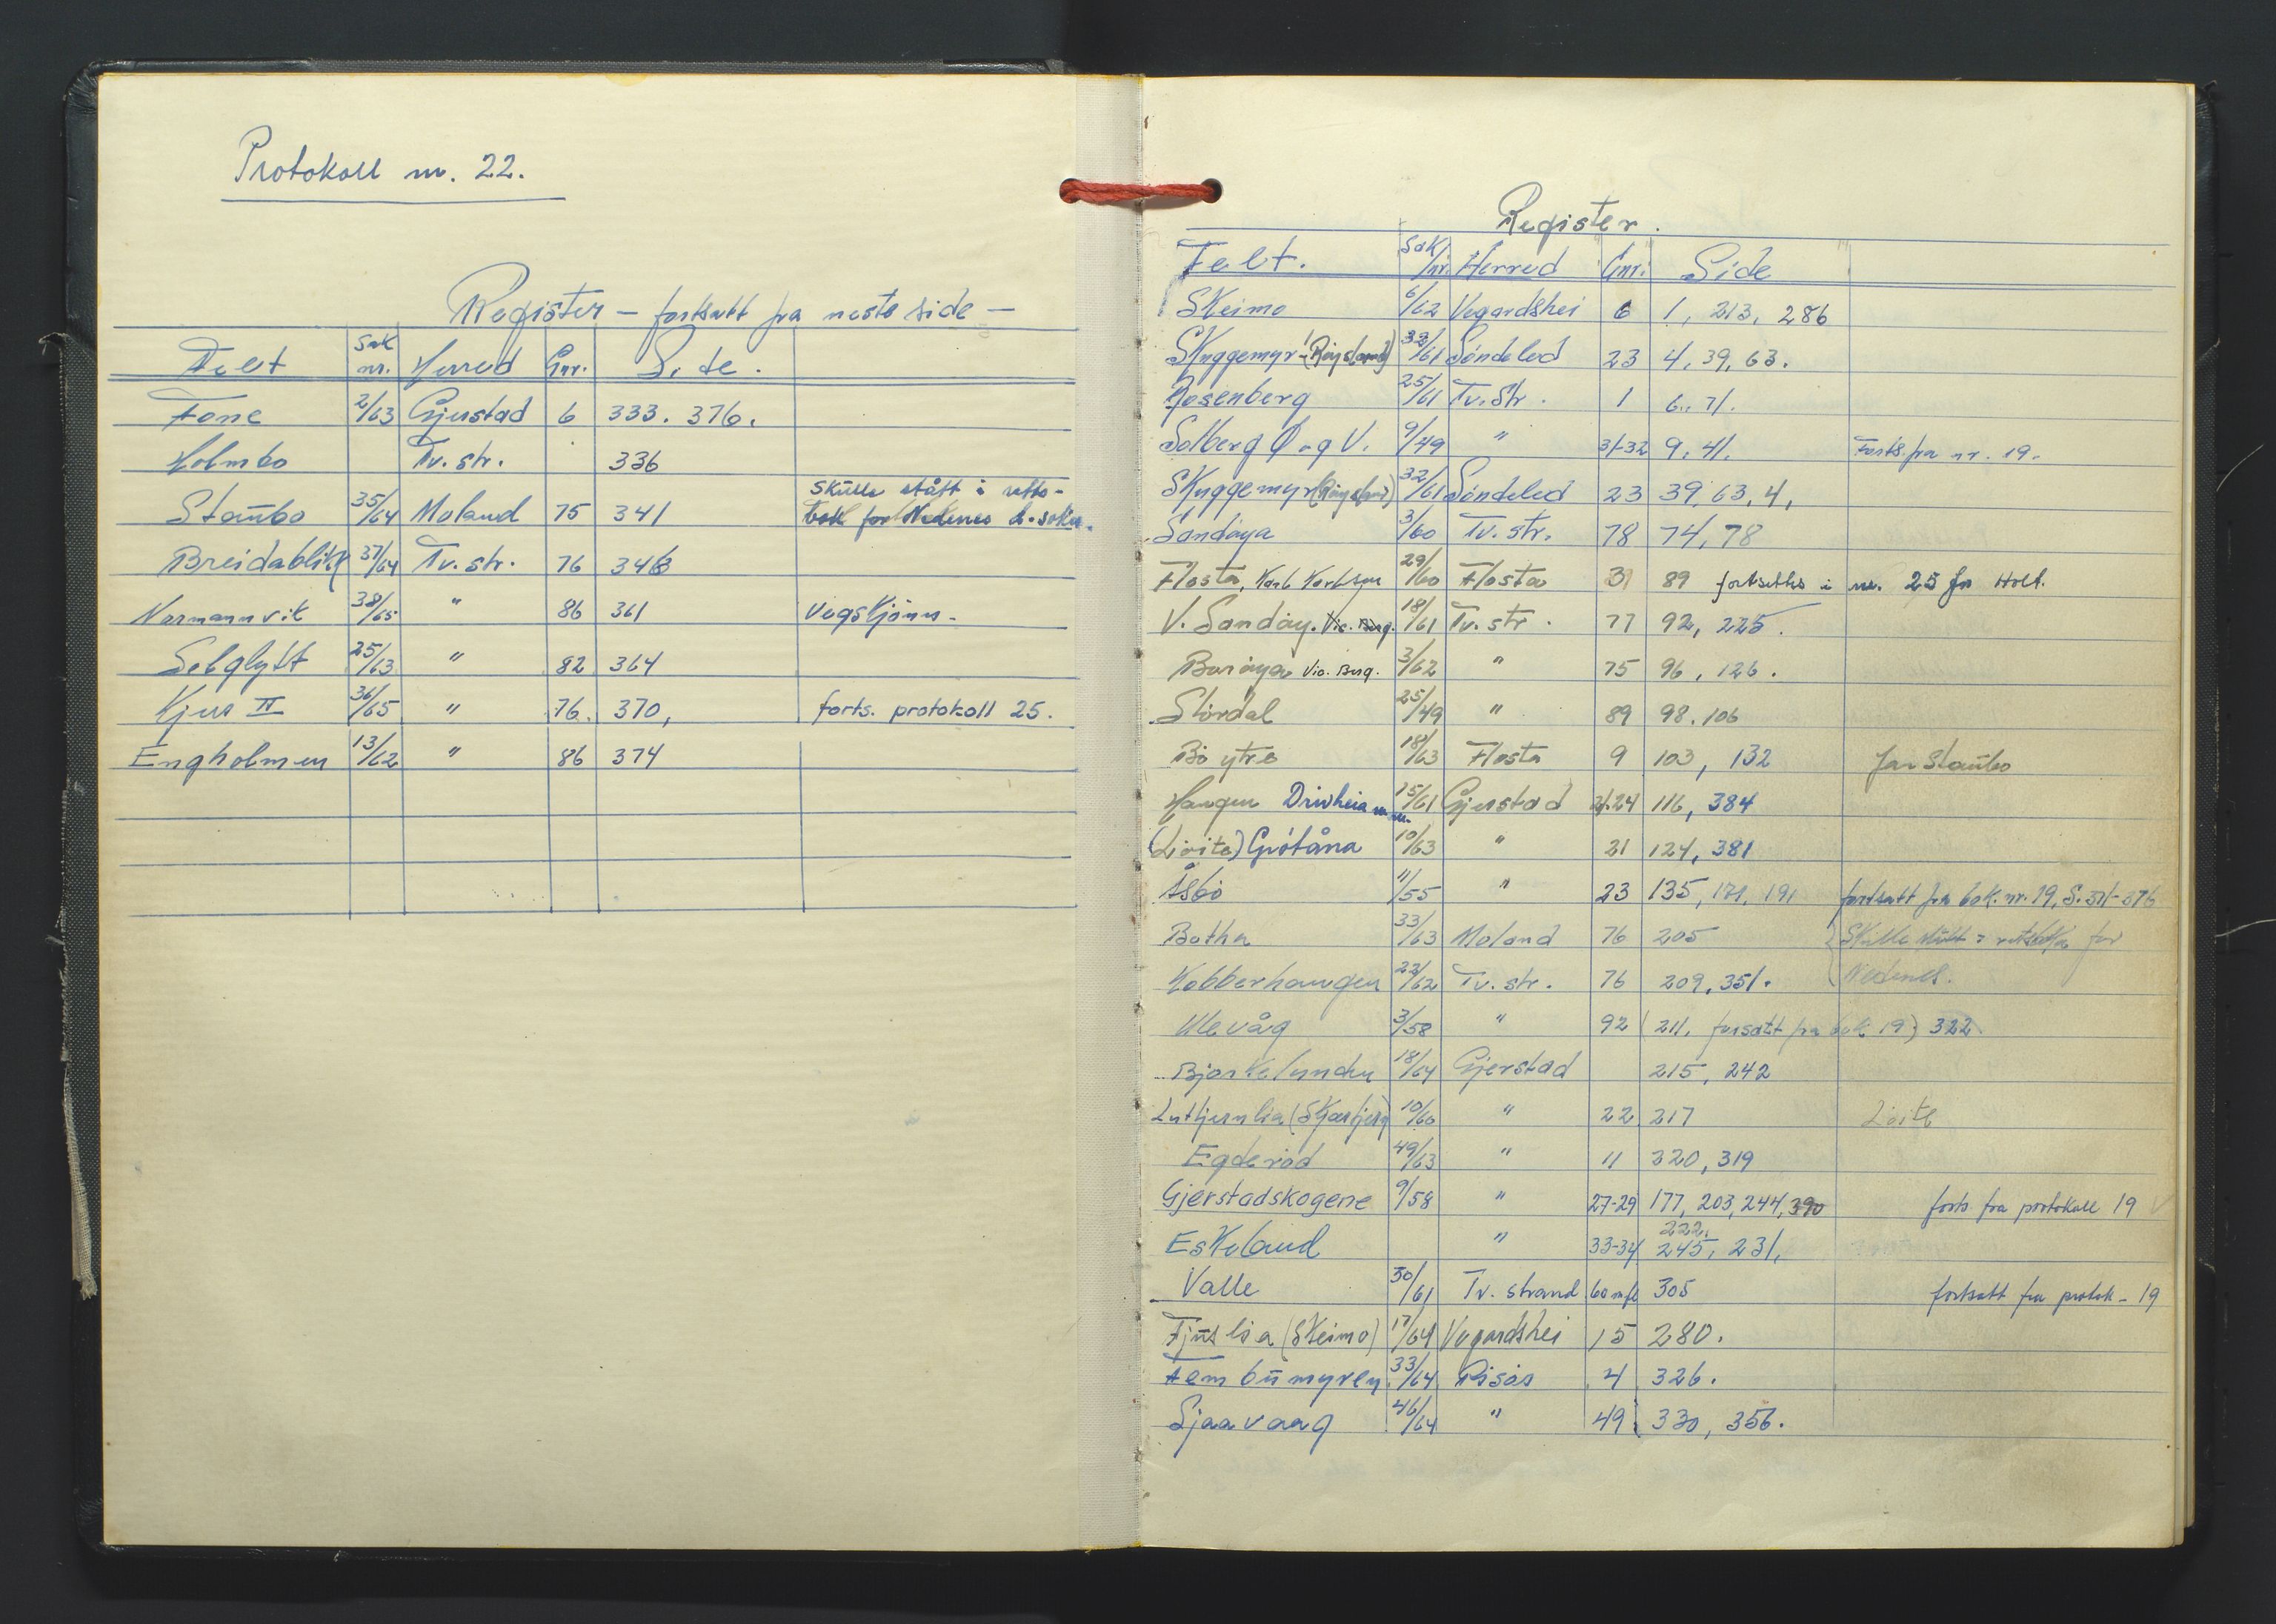 Protokoll nr. 22.
Register – fortsatt fra neste side –
Felt Sak nr. Herred Gnr. Side.
Fone 2/63 Gjerstad 6 333. 376.
Holmbo Tv. str. 336
Staubo 35/64 Moland 75 341 Skulle stått i retts-
bok for Nedenes
Breidablikk 37/64 Tv. str. 76 346
Normannvik 38/65 " 86 361 Vegskjønn.
Selglytt 25/63 " 82 364
Kjus II 36/65 " 76. 370, forts. protokoll 25.
Engholmen 13/62 " 86 374
Register.
Felt. Sak nr. Herred Gnr. Side
Skeimo 6/62 Vegardshei 6 1, 213, 286
Skyggemyr (Røysland) 33/61 Søndeled 23 4, 39, 63.
Rosenberg 25/61 Tv. Str. 1 6., 71.
Solberg Ø og V. 9/49 " 31-32 9, 41. Forts. fra nr. 19.
Skyggemyr (Røysland) 32/61 Søndeled 23 39, 63, 4,
Sandøya 3/60 Tv. str. 78 74, 78
Flosta, 29/60 Flosta 31 89 fortsettes i nr. 25 for Holt.
V. Sandøy. Vic. Berg. 18/61 Tv. str. 77 92, 225.
Borøya Vic. Berg. 3/62 " 75 96, 126.
Stórdal 25/49 " 89 98. 106
Bó ytre 18/63 Flosta 9 103, 132
Haugen Drivheia m.m. 15/61 Gjerstad 21.24 116, 384
(Livite) Grótåna 10/63 " 21 124, 381
Åsbó 11/55 " 23 135, 171, 191 fortsatt fra bok. nr. 19, S. 371-376
Botha 33/63 Moland 76 205 Skulle stått i rettsboka for
Kobberhaugen 23/62 Tv. str. 76 209, 351. Nedenes.
Ulevåg 3/58 " 92 (211, forsatt fra bok 19) 322.
Bjørkelunden 18/64 Gjerstad 215, 242
10/60 " 22 217
Egderød 49/63 " 11 320, 319
Gjerstadskogene 9/58 " 27-29 177, 203, 244, 390 forts fra protokoll 19
222,
Eskeland " 33-34 245, 231,
Valle 30/61 Tv. strand 60 m fl 305 fortsatt fra protok - 19
(Skeimo) 17/64 Vegardshei 15 280.
33/64 Risør 4 326.
Sjaavaag 46/64 " 49 330, 356.